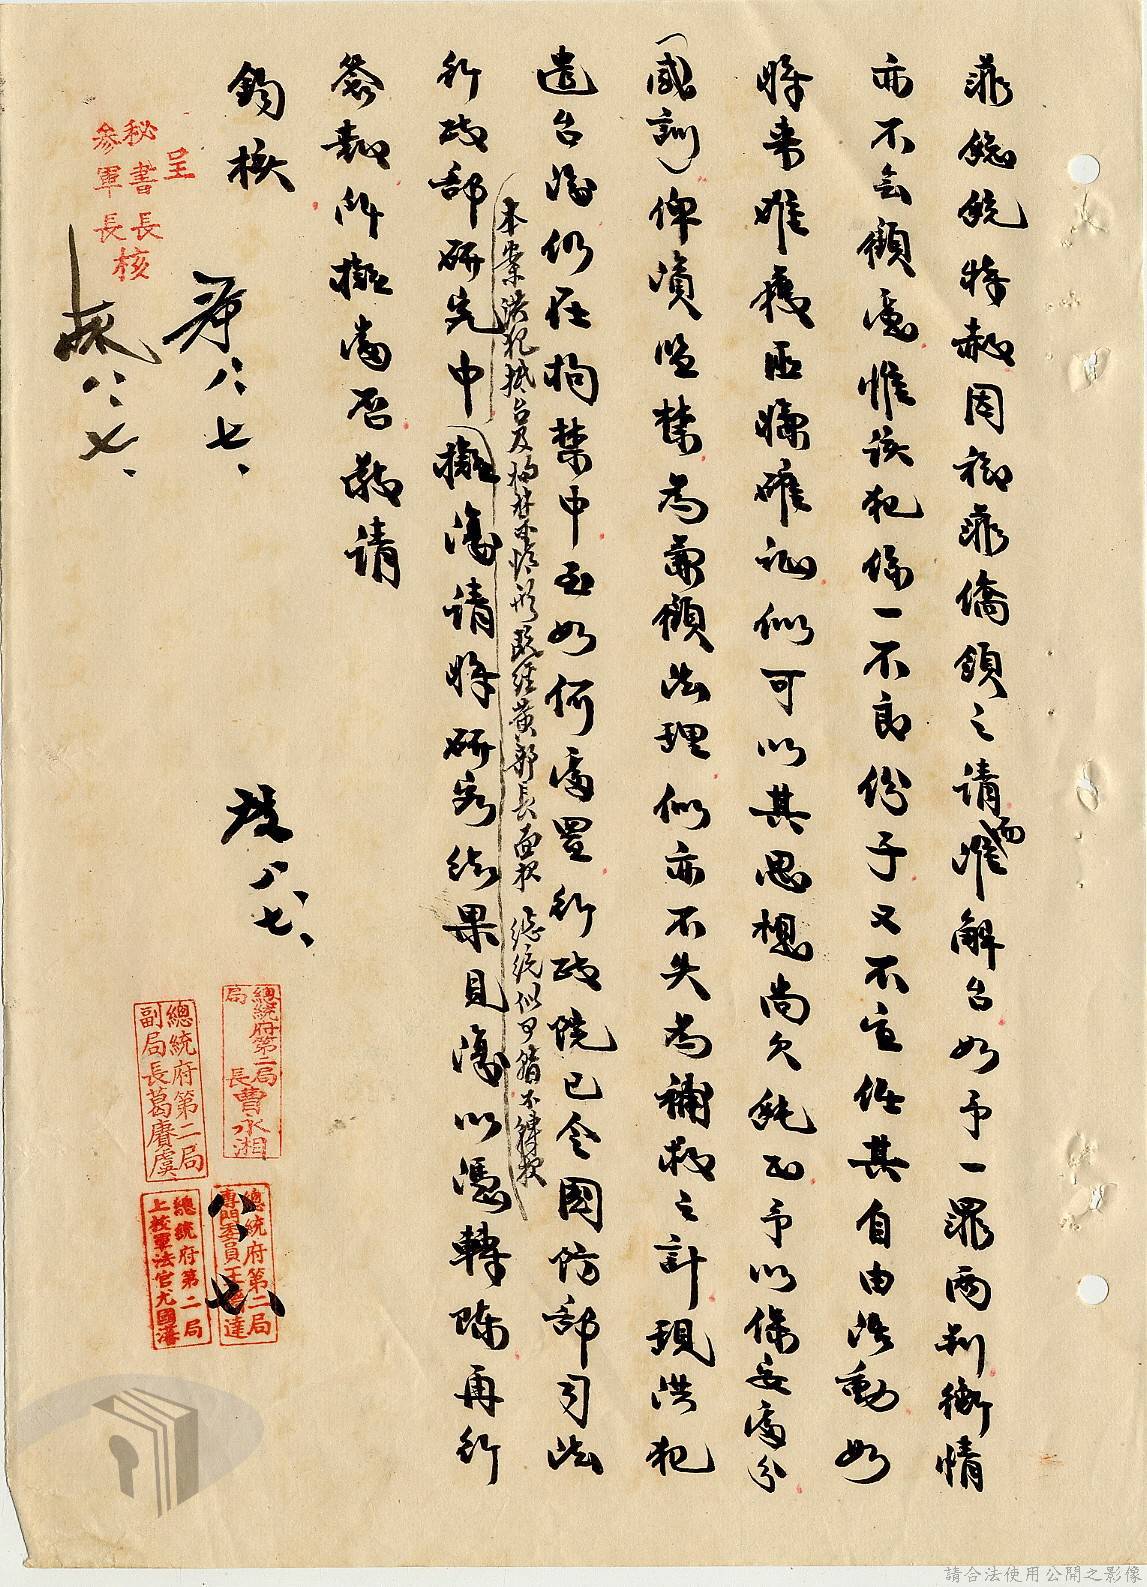 菲總統特赦因徇菲僑領之請而准解台如予一罪兩判衡情
亦不無顧慮惟該犯係一不良份子又不宜任其自由活動如
將來難獲匪嫌確証似可以其思想尚欠純正予以保安處分
(感訓)俾資監禁為兼顧法理似亦不失為補救之計現洪犯
遣台後仍在拘禁中至如何處置行政院已令國防部司法
行政部研究中擬復請將研究結果見復以憑轉陳再行
本案洪犯抵台及拘禁情形既經黃部長面報 總統似可暫不轉報
簽報所擬當否敬請
鈞核
呈
秘書長
參軍長
核
八、七、
八、七、
八、七、
八、七、
總統府第二局
局長曹永湘
總統府第二局
副局長葛賡虞
總統府第二局
專門委員王 達
總統府第二局
上校軍法官尤國藩
請合法使用公開之影像